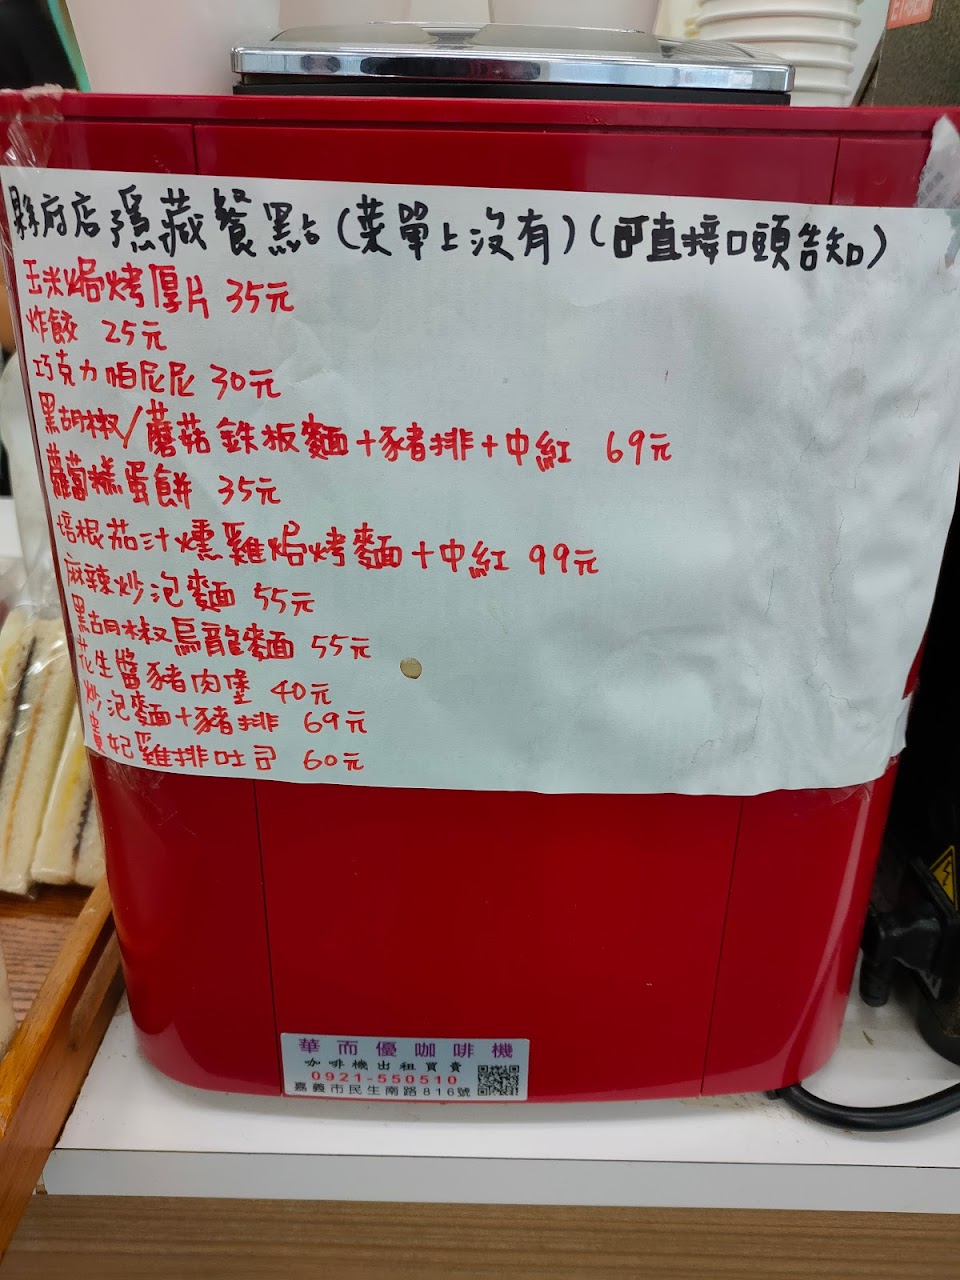 縣府店隱藏餐點(菜單上沒有)(可直接口頭告知)
玉米焗烤厚片 35元
炸餃 25元
巧克力帕尼尼 30元
黑胡椒/蘑菇鉄板麵+豬排+中紅 69元
蘿蔔糕蛋餅 35元
培根茄汁燻雞焗烤麵+中紅 99元
麻辣炒泡麵 55元
黑胡椒烏龍麵 55元
花生醬豬肉堡 40元
炒泡麵+豬排 69元
貴妃雞排吐司 60元
華而優咖啡機
咖啡機出租買賣
0921-550510
嘉義市民生南路816號